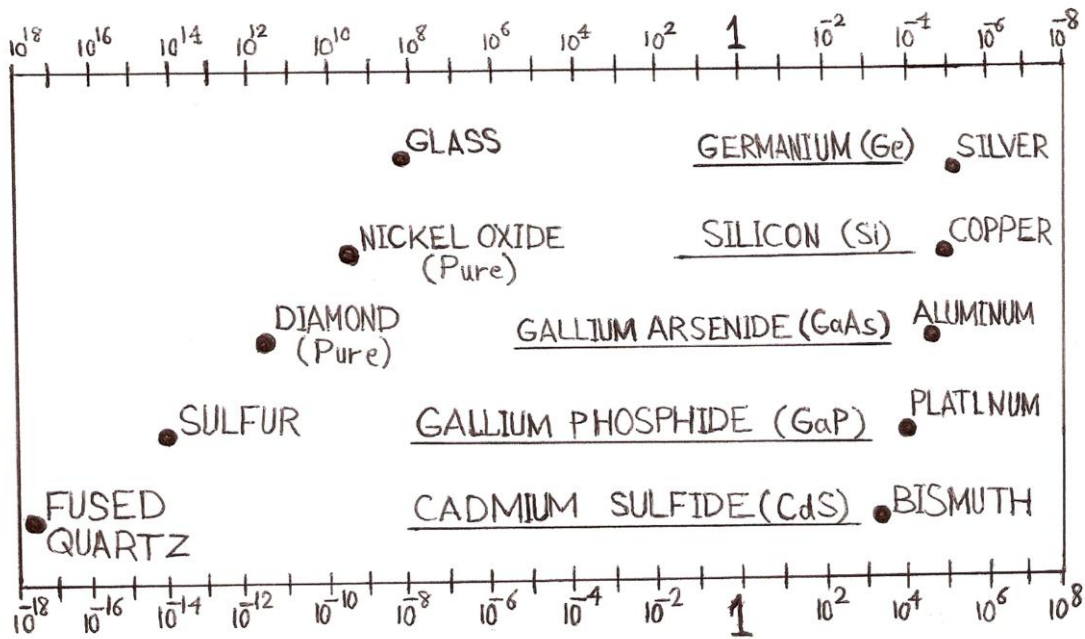 10¹⁸ 10¹⁶ 10¹⁴ 10¹² 10¹⁰ 10⁸ 10⁶ 10⁴ 10² 1 10⁻² 10⁻⁴ 10⁻⁶ 10⁻⁸
GLASS GERMANIUM (Ge) SILVER
NICKEL OXIDE SILICON (Si) COPPER
(Pure)
DIAMOND GALLIUM ARSENIDE (GaAs) ALUMINUM
(Pure)
SULFUR GALLIUM PHOSPHIDE (GaP) PLATINUM
FUSED CADMIUM SULFIDE (CdS) BISMUTH
QUARTZ
10⁻¹⁸ 10⁻¹⁶ 10⁻¹⁴ 10⁻¹² 10⁻¹⁰ 10⁻⁸ 10⁻⁶ 10⁻⁴ 10⁻² 1 10² 10⁴ 10⁶ 10⁸